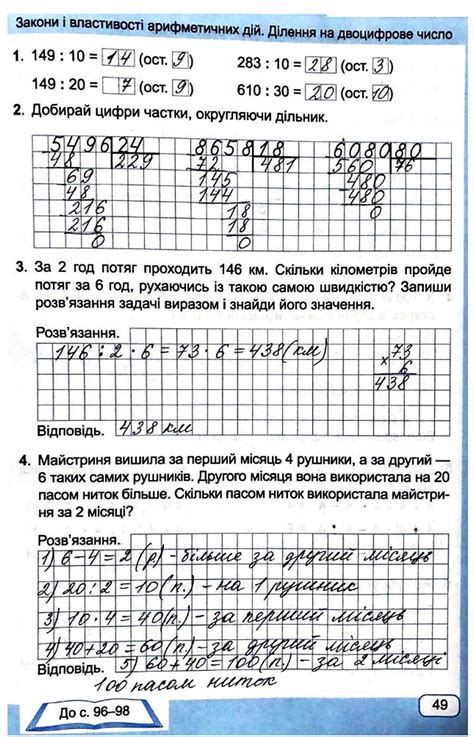 Закони і властивості арифметичних дій. Ділення на двоцифрове число
1. 149 : 10 = 14 (ост. 9) 283 : 10 = 28 (ост. 3)
149 : 20 = 7 (ост. 9) 610 : 30 = 20 (ост. 10)
2. Добирай цифри частки, округляючи дільник.
5496 24 8658 18 6080 80
48 229 72 481 560 76
69 145 480
48 144 480
216 18 0
216 18
0 0
3. За 2 год потяг проходить 146 км. Скільки кілометрів пройде
потяг за 6 год, рухаючись із такою самою швидкістю? Запиши
розв'язання задачі виразом і знайди його значення.
Розв'язання.
146 : 2 · 6 = 73 · 6 = 438 (км) 73
× 6
438
Відповідь. 438 км.
4. Майстриня вишила за перший місяць 4 рушники, а за другий —
6 таких самих рушників. Другого місяця вона використала на 20
пасом ниток більше. Скільки пасом ниток використала майстри-
ня за 2 місяці?
Розв'язання.
1) 6 – 4 = 2 (р) - більше за другий місяць
2) 20 : 2 = 10 (п.) - на 1 рушник
3) 10 · 4 = 40 (п.) - за перший місяць
4) 40 + 20 = 60 (п.) - за другий місяць
5) 60 + 40 = 100 (п.) - за 2 місяці
Відповідь.
100 пасом ниток
До с. 96–98
49